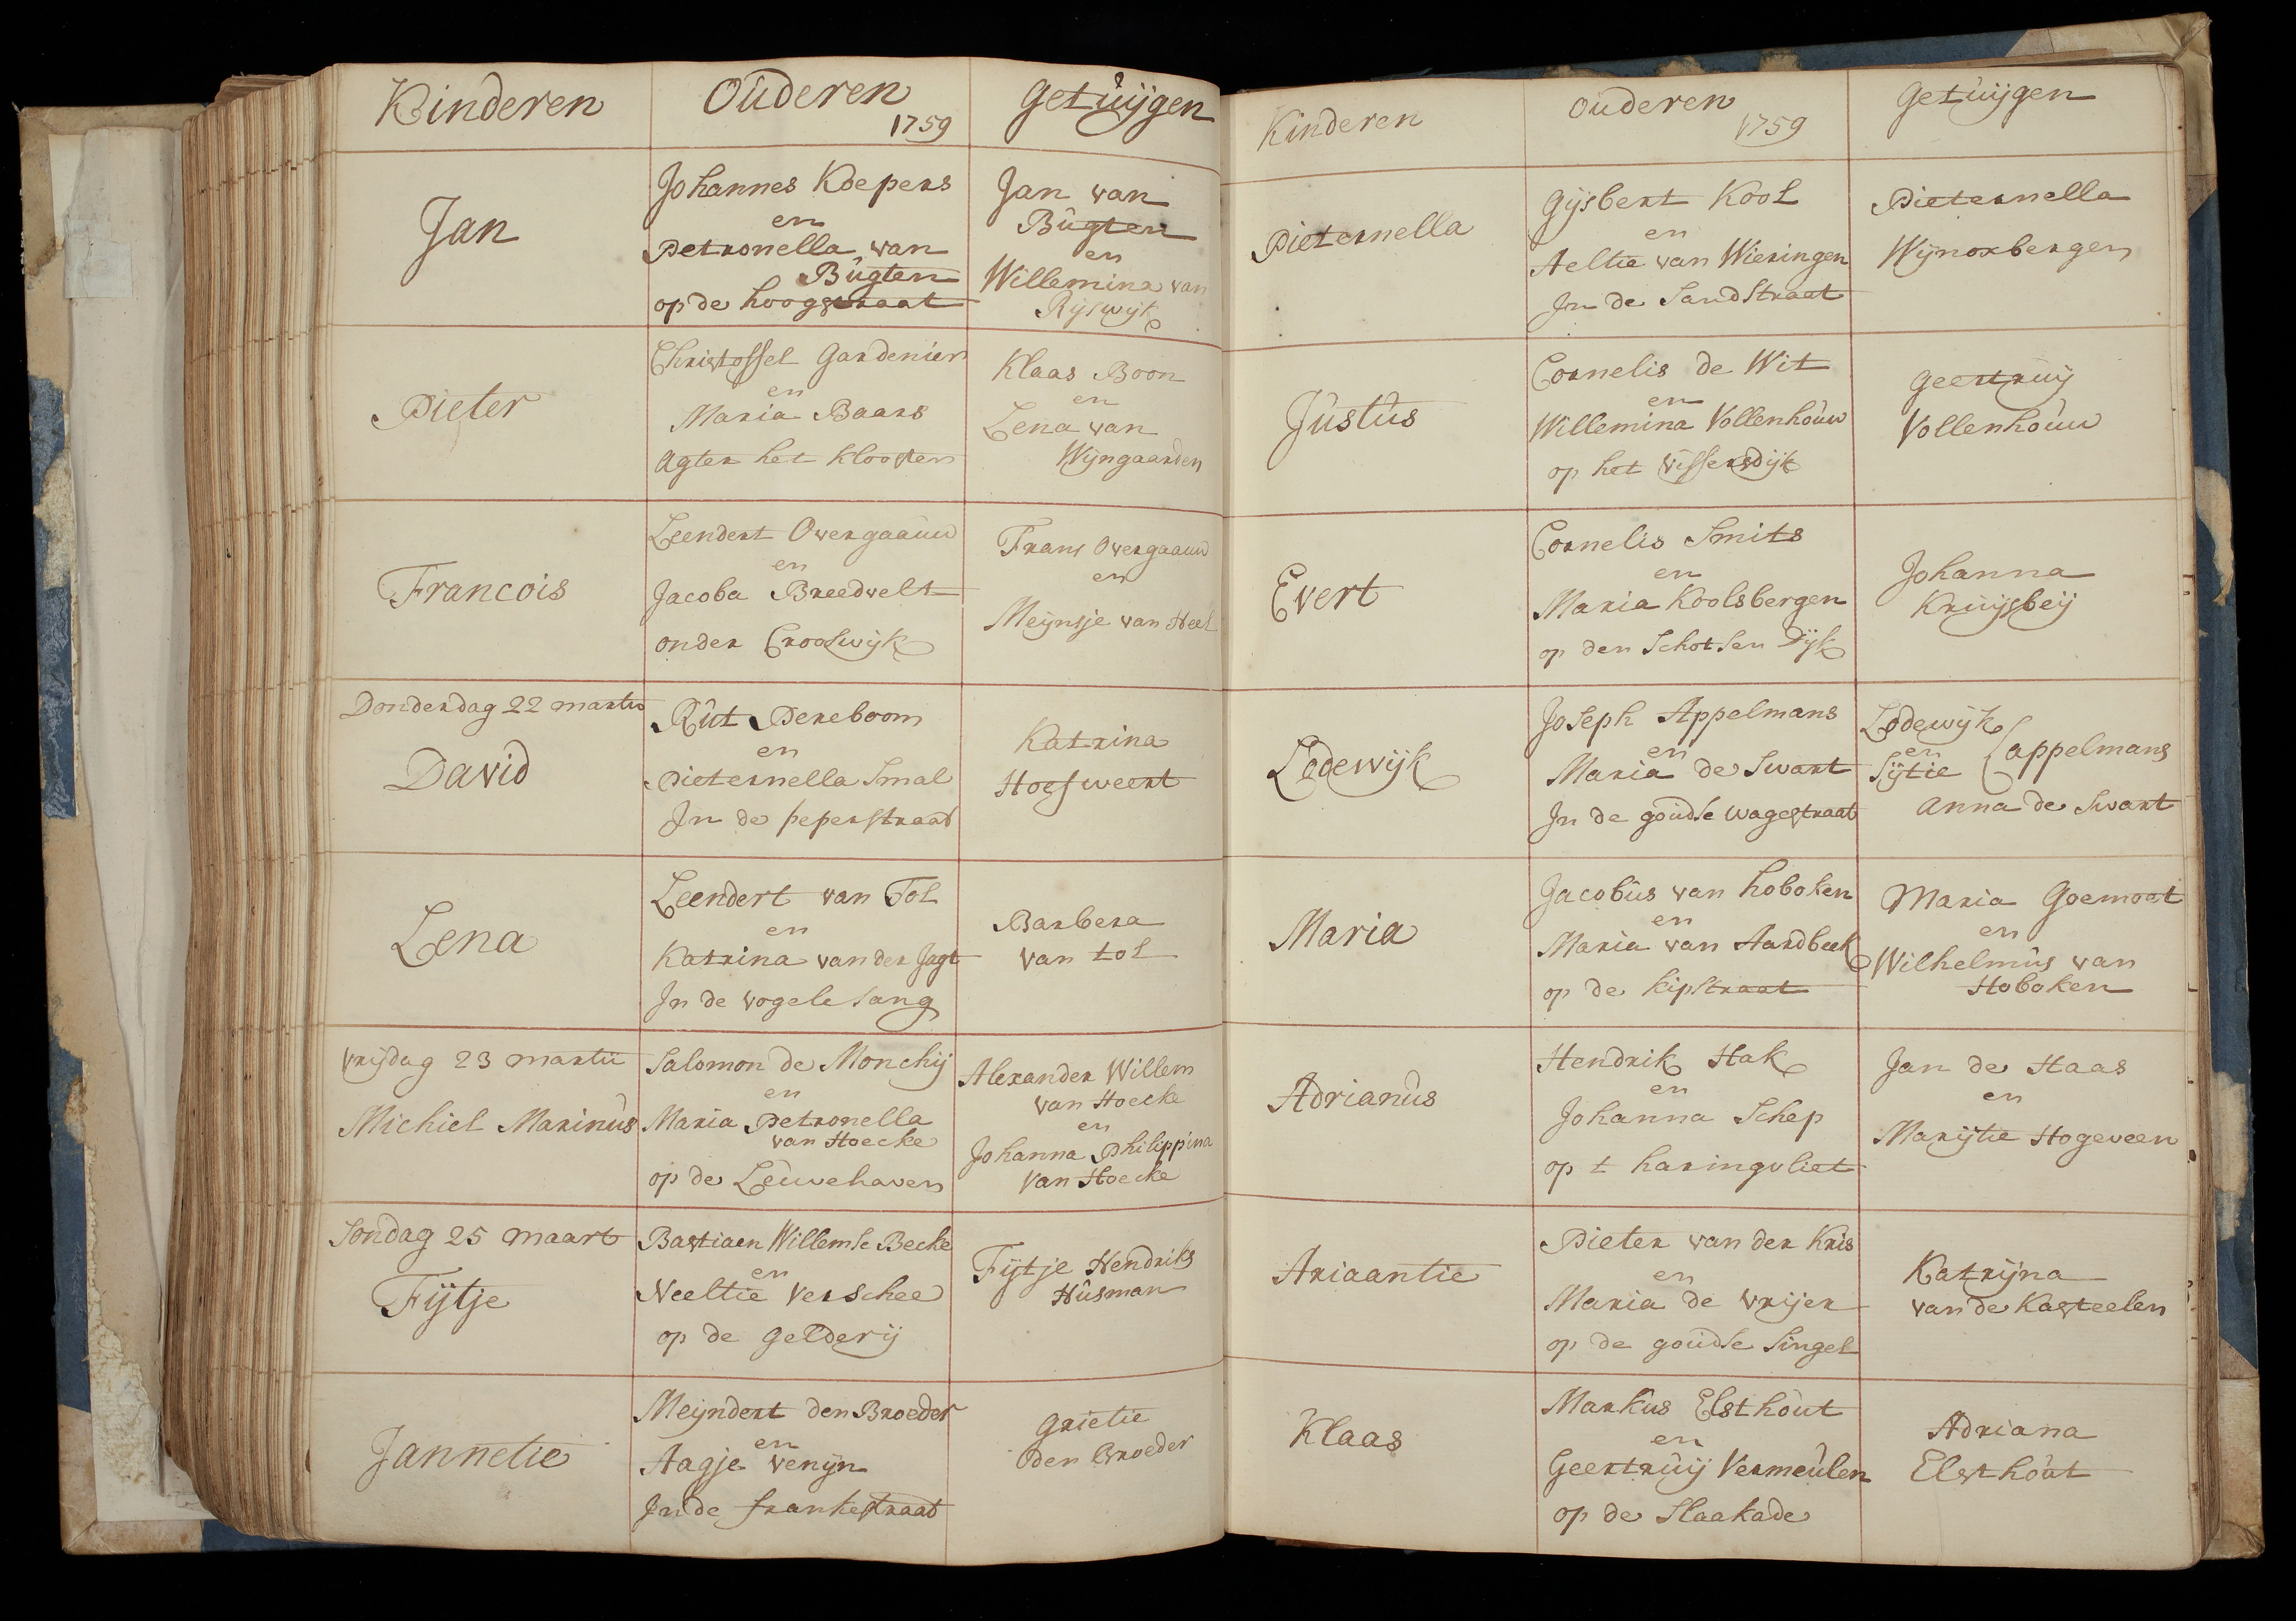 Kinderen
Ouderen
1759
Getuijgen
Jan
Johannes Koepers
en
Petronella van
Bugten
op de hoogstraat
Jan van
Bugten
en
Willemina van
Rijswijk
Pieter
Christoffel Gardenier
en
Maria Baars
Agter het klooster
Klaas Boon
en
Lena van
Wijngaarden
Francois
Leendert Overgaauw
en
Jacoba Breedvelt
onder Crooswijk
Frans Overgaauw
en
Meijnsje van Heel
Donderdag 22 martii
David
Rut Pereboom
en
Pieternella Smal
In de peperstraat
Katrina
Hoefsweert
Lena
Leendert van Tol
en
Katrina van der Jagt
In de vogele sang
Barbera
van tol
Vrijdag 23 martii
Michiel Marinus
Salomon de Monchij
en
Maria Petronella
van Hoecke
op de Leuvehaven
Alexander Willem
van Hoecke
en
Johanna Philippina
van Hoecke
Sondag 25 maart
Fijtje
Bastiaen Willemse Becke
en
Neeltie Verschee
op de gelderij
Fijtje Hendriks
Husman
Jannetie
Meijndert den Broeder
en
Aagje Venijn
In de frankestraat
grietie
den Broeder
Kinderen
ouderen
1759
Getuijgen
Pieternella
Gijsbert Kool
en
Aeltie van Wieringen
In de Sandstraat
Pieternella
Wijnoxbergen
Justus
Cornelis de Wit
en
Willemina Vollenhouw
op het vissersdijk
geertruij
Vollenhouw
Evert
Cornelis Smits
en
Maria Koolsbergen
op den Schotsen Dijk
Johanna
Kruijsbeij
Lodewijk
Joseph Appelmans
en
Maria de Swart
In de goudse wagestraat
Lodewijk
en
Sijtie
appelmans
anna de Swart
Maria
Jacobus van hoboken
en
Maria van Aardbeek
op de kipstraat
Maria Goemoet
en
Wilhelmus van
Hoboken
Adrianus
Hendrik Hak
en
Johanna Schep
op t haringvliet
Jan de Haas
en
Marijtie Hogeveen
Ariaantie
Pieter van der Kris
en
Maria de Vrijer
op de goudse Singel
Katrijna
van de Kasteelen
Klaas
Markus Elsthout
en
Geertruij Vermeulen
op de Slaakade
Adriana
Elsthout